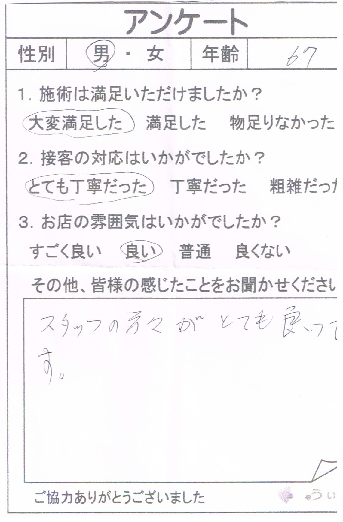 アンケート
性別 男・女 年齢 67
1. 施術は満足いただけましたか？
大変満足した 満足した 物足りなかった
2. 接客の対応はいかがでしたか？
とても丁寧だった 丁寧だった 粗雑だっ
3. お店の雰囲気はいかがでしたか？
すごく良い 良い 普通 良くない
その他、皆様の感じたことをお聞かせくださ
スタッフの方々がとても良
す。
ご協力ありがとうございました